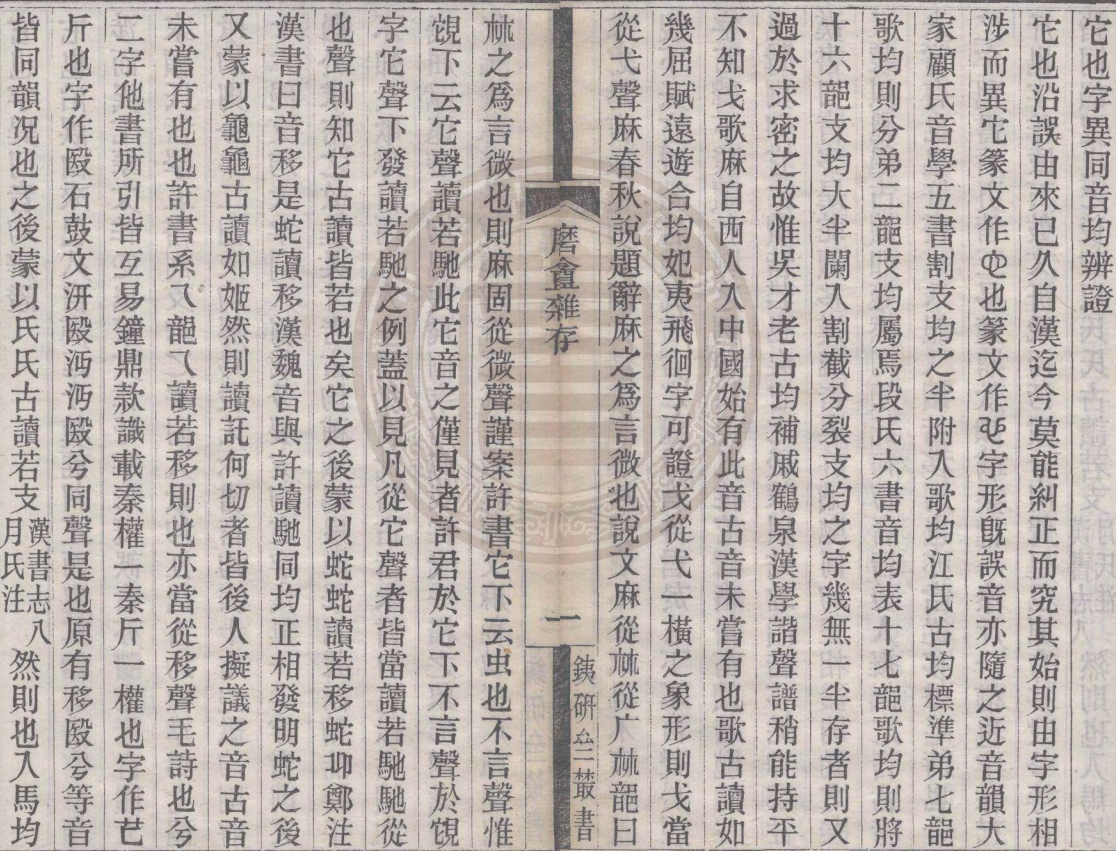 它也字異同音均辨證
它也沿誤由來已久自漢迄今莫能糾正而究其始則由字形相
涉而異它篆文作也篆文作字形旣誤音亦隨之近音韻大
家顧氏音學五書割支均之半附入歌均江氏古均標準弟七部
歌均則分弟二部支均屬焉段氏六書音均表十七部歌均則將
十六部支均大半闌入割截分裂支均之字幾無一半存者則又
過於求密之故惟吳才老古均補戚鶴泉漢學諧聲譜稍能持平
不知戈歌麻自西人入中國始有此音古音未嘗有也歌古讀如
幾屈賦遠遊合均妃夷飛徊字可證戈從弋一橫之象形則戈當
從弋聲麻春秋說題辭麻之爲言微也說文麻從𣏟從广𣏟部曰
磨盦雜存
一
銕研亝叢書
𣏟之爲言微也則麻固從微聲謹案許書它下云虫也不言聲惟
𧠜下云它聲讀若馳此它音之僅見者許君於它下不言聲於𧠜
字它聲下發讀若馳之例蓋以見凡從它聲者皆當讀若馳馳從
也聲則知它古讀皆若也矣它之後蒙以蛇蛇讀若移蛇卽鄭注
漢書曰音移是蛇讀移漢魏音與許讀馳同均正相發明蛇之後
又蒙以龜龜古讀如姬然則讀託何切者皆後人擬議之音古音
未嘗有也也許書系乁部乁讀若移則也亦當從移聲毛詩也兮
二字他書所引皆互易鐘鼎款識載秦權一秦斤一權也字作芒
斤也字作殹石鼓文汧殹沔沔殹兮同聲是也原有移殹兮等音
皆同韻況也之後蒙以氏氏古讀若支漢書志八月氏注然則也入馬均